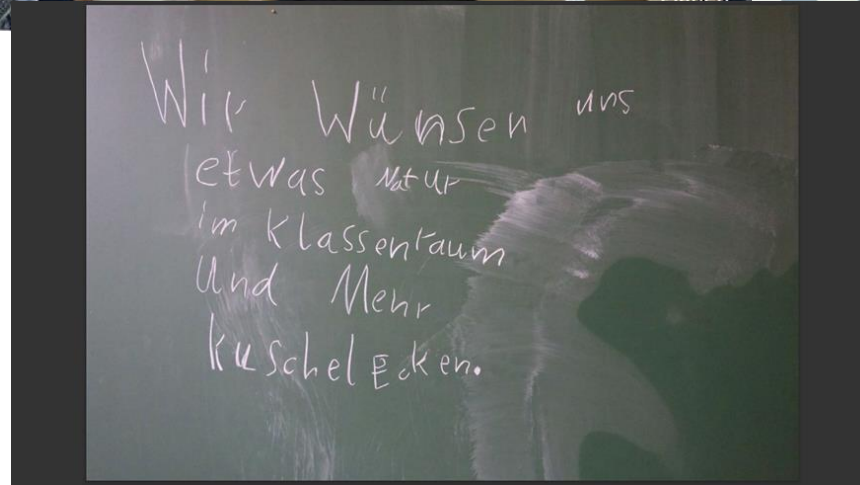 Wir Wünsen uns
etwas Natur
im Klassenraum
Und Mehr
kuschel Ecken.